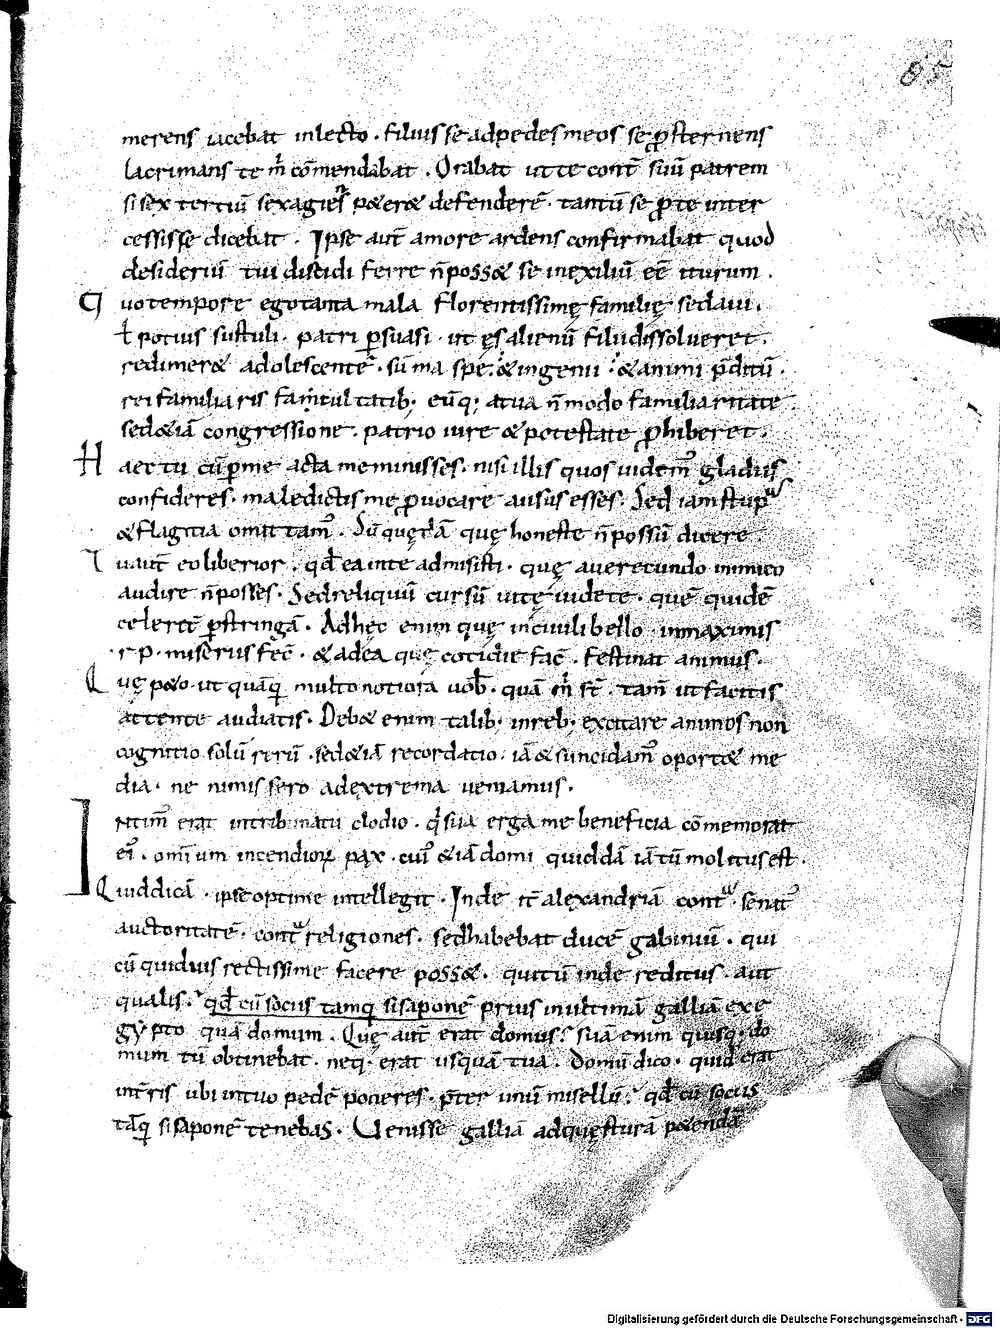 85
merens iacebat inlecto · filius se adpedes meos se ꝓsternens
lacrimans te m̅ com̅endabat . Orabat ut te cont̅ suu̅ patrem
si sex tertiu̅ sexagies peteret defendere̅ · tantu̅ se ꝓ te inter
cessisse dicebat . Ipse aut̅ amore ardens confirmabat quod
desideriu̅ tui discidi ferre n̅ posset se inexiliu̅ ee̅ iturum .
Quo tempore ego tanta mala florentissimę familię sedaui .
ł potius sustuli · patri ꝑsuasi · ut ęs alienu̅ filii dissolueret .
redimeret adolescente̅ · sum̅a spe & ingenii & animi p̅ditu̅ .
rei familiaris facultatib; eu̅q; a tua n̅ modo familiaritate
sed &ia̅ congressione · patrio iure & potestate ꝓhiberet .
Haec tu cu̅ ꝑ me acta meminisses · nisi illis quos uidem᷒ gladiis
confideres · maledictis me ꝓuocare ausus esses . Sed iam stupra
& flagitia omittam᷒ . Su̅ quęda̅ quę honeste n̅ possu̅ dicere .
Tu aut̅ eo liberior · qd̅ ea in te admisisti · quę a uerecundo inimico
audire n̅ posses . Sed reliquu̅ cursu̅ uitę uidete · que̅ quide̅
celerit̅ ꝑstringa̅ . Ad hęc enim quę in ciuili bello inmaximis
· r p · miseriis fec̅ · & adea quę cotidie fac̅ . Festinat animus .
Quę peto · ut qua̅q̅ multo notiora uob̅ · qua̅ m̅ st̅ · tam̅ ut facitis
attente audiatis . Debet enim talib; inreb; excitare animos non
cognitio solu̅ reru̅ · sed &ia̅ recordatio · 
dia · ne nimis sero adextrema ueniamus .
Intim᷒ erat intribunatu clodio · q̅ sua erga me beneficia com̅emorat
ei᷒ · omnium incendioꝝ fax · cui᷒ &ia̅ domi quidda̅ ia̅ tu̅ molitus est .
Quid dica̅ · ipse optime intellegit . Inde it̅ alexandria̅ contra · senat᷒
auctoritate̅ · contra religiones · sed habebat duce̅ gabiniu̅ . qui
cu̅ quiduis rectissime facere posset . qui tu̅ inde reditus · aut
qualis · qd̅ cu̅ sociis tamq̅ sisapone̅ prius inultima̅ gallia̅ exe
gypto qua̅ domum . Quę aut̅ erat domus? sua̅ enim quisq; do
mum tu̅ obtinebat · neq; erat usqua̅ tua . Domu̅ dico · quid erat
int̅ris ubi intuo pede̅ poneres · p̅ter unu̅ misellu̅ · qd̅ cu̅ sociis
ta̅q̅ sisapone̅ tenebas . Uenisse gallia̅ adquęstura̅ petenda̅
Digitalisierung gefördert durch die Deutsche Forschungsgemeinschaft · DFG